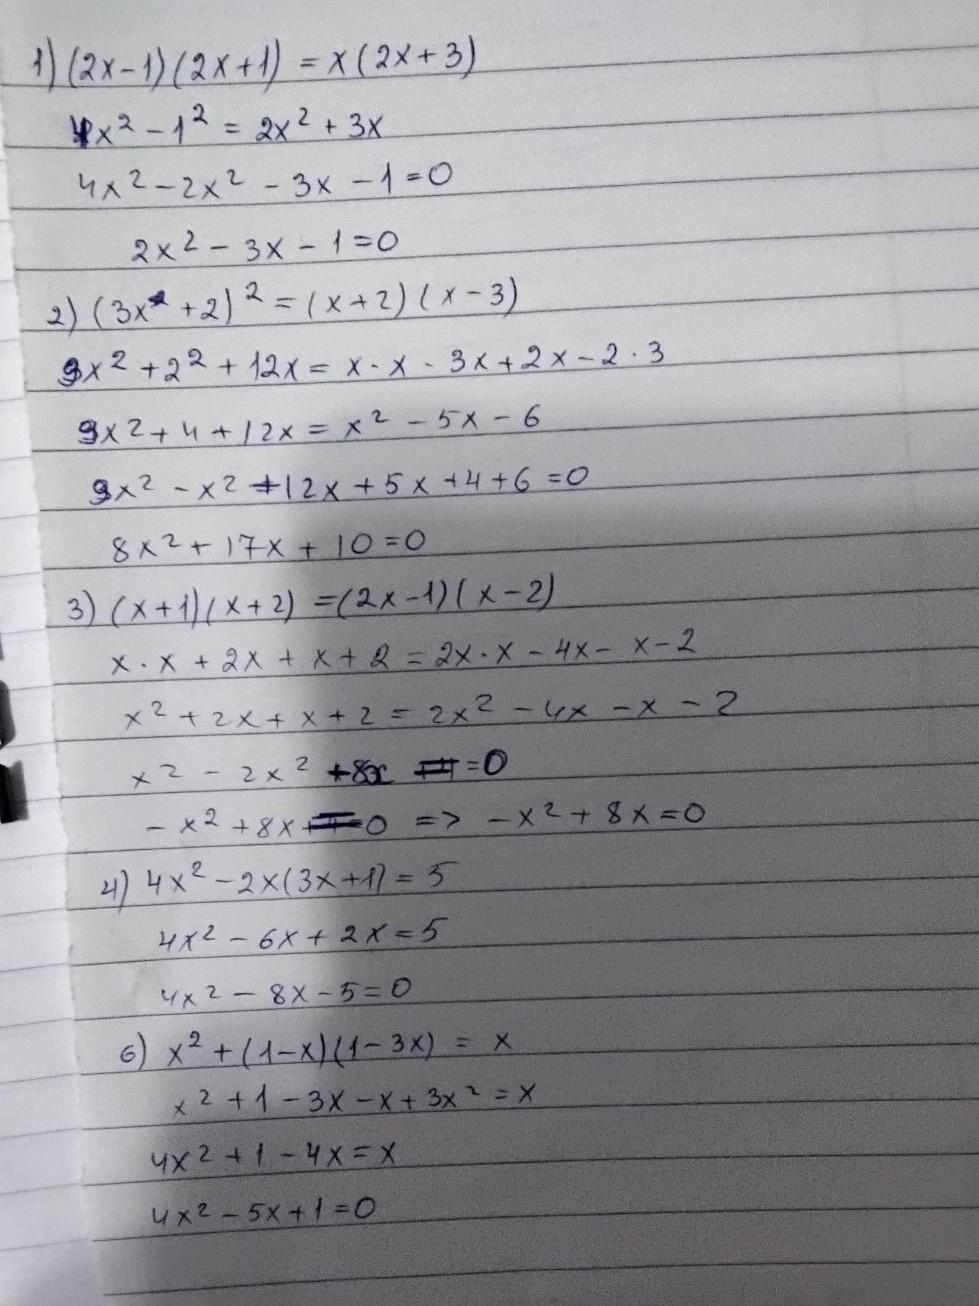 1) (2x-1)(2x+1) = x(2x+3)
4x² - 1² = 2x² + 3x
4x² - 2x² - 3x - 1 = 0
2x² - 3x - 1 = 0
2) (3x + 2)² = (x+2)(x-3)
9x² + 2² + 12x = x · x - 3x + 2x - 2 · 3
9x² + 4 + 12x = x² - 5x - 6
9x² - x² + 12x + 5x + 4 + 6 = 0
8x² + 17x + 10 = 0
3) (x+1)(x+2) = (2x-1)(x-2)
x · x + 2x + x + 2 = 2x · x - 4x - x - 2
x² + 2x + x + 2 = 2x² - 4x - x - 2
x² - 2x² + 8x = 0
- x² + 8x = 0 => - x² + 8x = 0
4) 4x² - 2x(3x+1) = 5
4x² - 6x + 2x = 5
4x² - 8x - 5 = 0
6) x² + (1-x)(1-3x) = x
x² + 1 - 3x - x + 3x² = x
4x² + 1 - 4x = x
4x² - 5x + 1 = 0